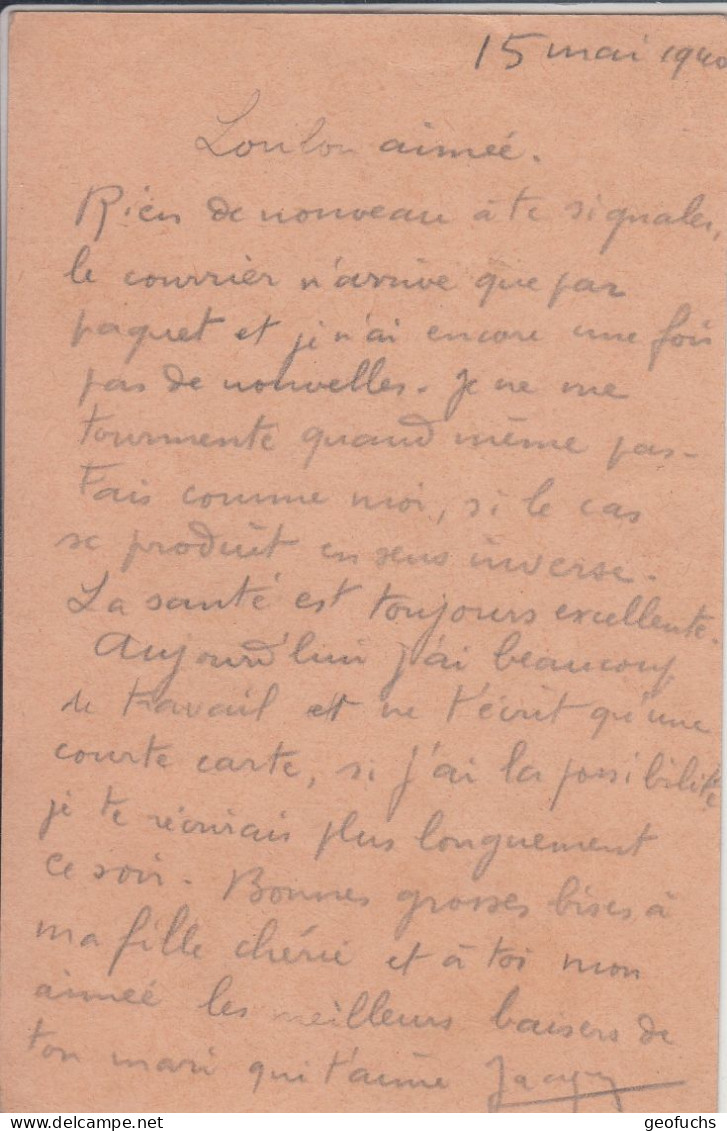 15 mai 1940
Loulou aimeé.
Rien de nouveau à te signaler,
le courrier n'arrive que par
paquet et je n'ai encore une fois
pas de nouvelles. Je ne me
tourmente quand même pas.
Fais comme moi, si le cas
se produit en sens inverse.
La santé est toujours excellente.
Aujourd'hui j'ai beaucoup
de travail et ne t'écrit qu'une
courte carte, si j'ai la possibilité
je te récrirais plus longuement
ce soir. Bonnes grosses bises à
ma fille chérie et à toi mon
aimeé les meilleurs baisers de
ton mari qui t'aime Jacques
geofuchs